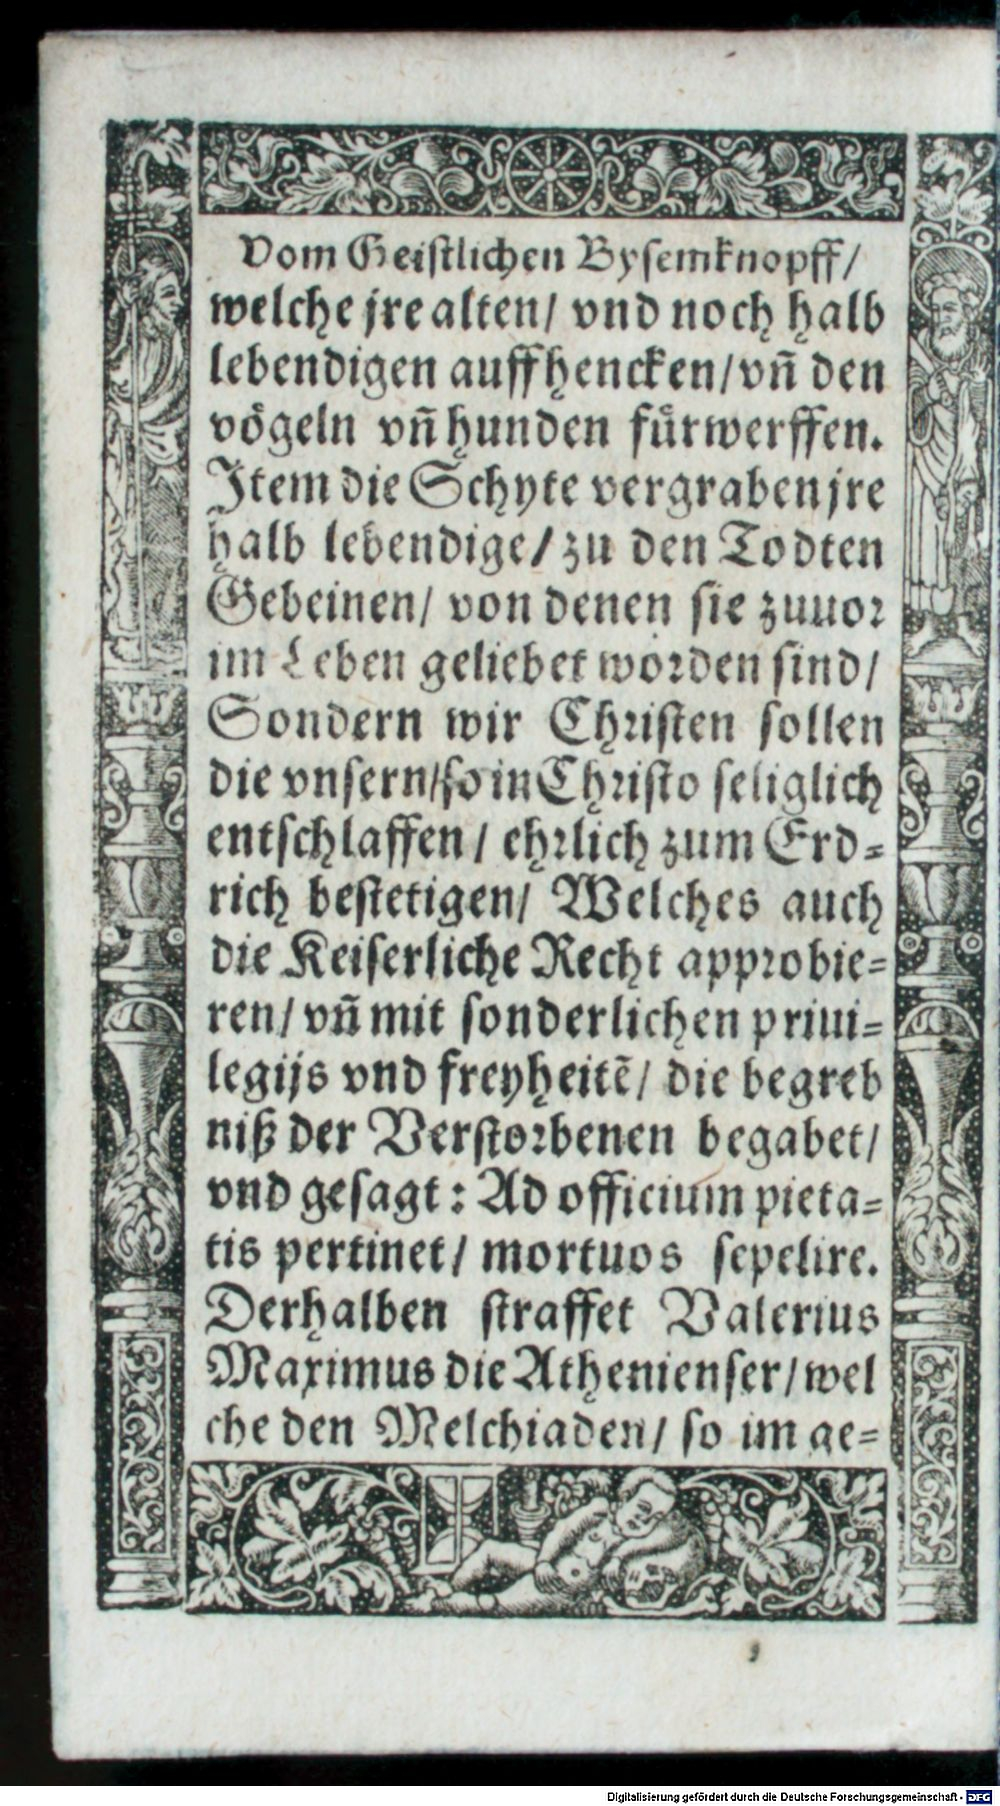 Vom Geistlichen Bysemknopff/
welche jre alten/ vnd noch halb
lebendigen auffhencken/ vñ den
voͤgeln vñ hunden fuͤrwerffen.
Item die Schyte vergraben jre
halb lebendige/ zu den Todten
Gebeinen/ von denen sie zuuor
im Leben geliebet worden sind/
Sondern wir Christen sollen
die vnsern/ so in Christo seliglich
entschlaffen/ ehrlich zum Erd-
rich bestetigen/ Welches auch
die Keiserliche Recht approbie-
ren/ vñ mit sonderlichen priui-
legijs vnd freyheitẽ/ die begreb
niß der Verstorbenen begabet/
vnd gesagt: Ad officium pieta-
tis pertinet/ mortuos sepelire.
Derhalben straffet Valerius
Maximus die Athenienser/ wel
che den Melchiaden/ so im ge-
Digitalisierung gefördert durch die Deutsche Forschungsgemeinschaft - DFG